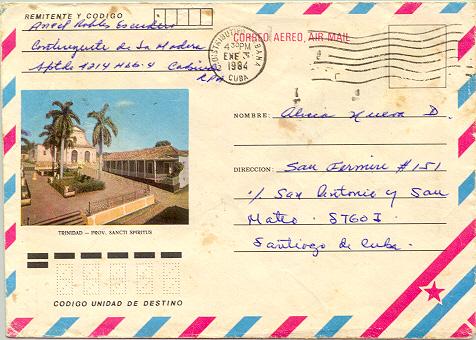 REMITENTE Y CODIGO
Angel Robles Escudero
Contingente de La Madera
Aptdo 4214
CORREO AEREO, AIR MAIL
HABANA
4 30 PM
ENE 3
1984
CUBA
NOMBRE: Alicia D.
DIRECCION: San Fermin # 151
%  San Antonio y San
Mateo.
Santiago de Cuba.
TRINIDAD — PROV. SANCTI SPIRITUS
CODIGO UNIDAD DE DESTINO